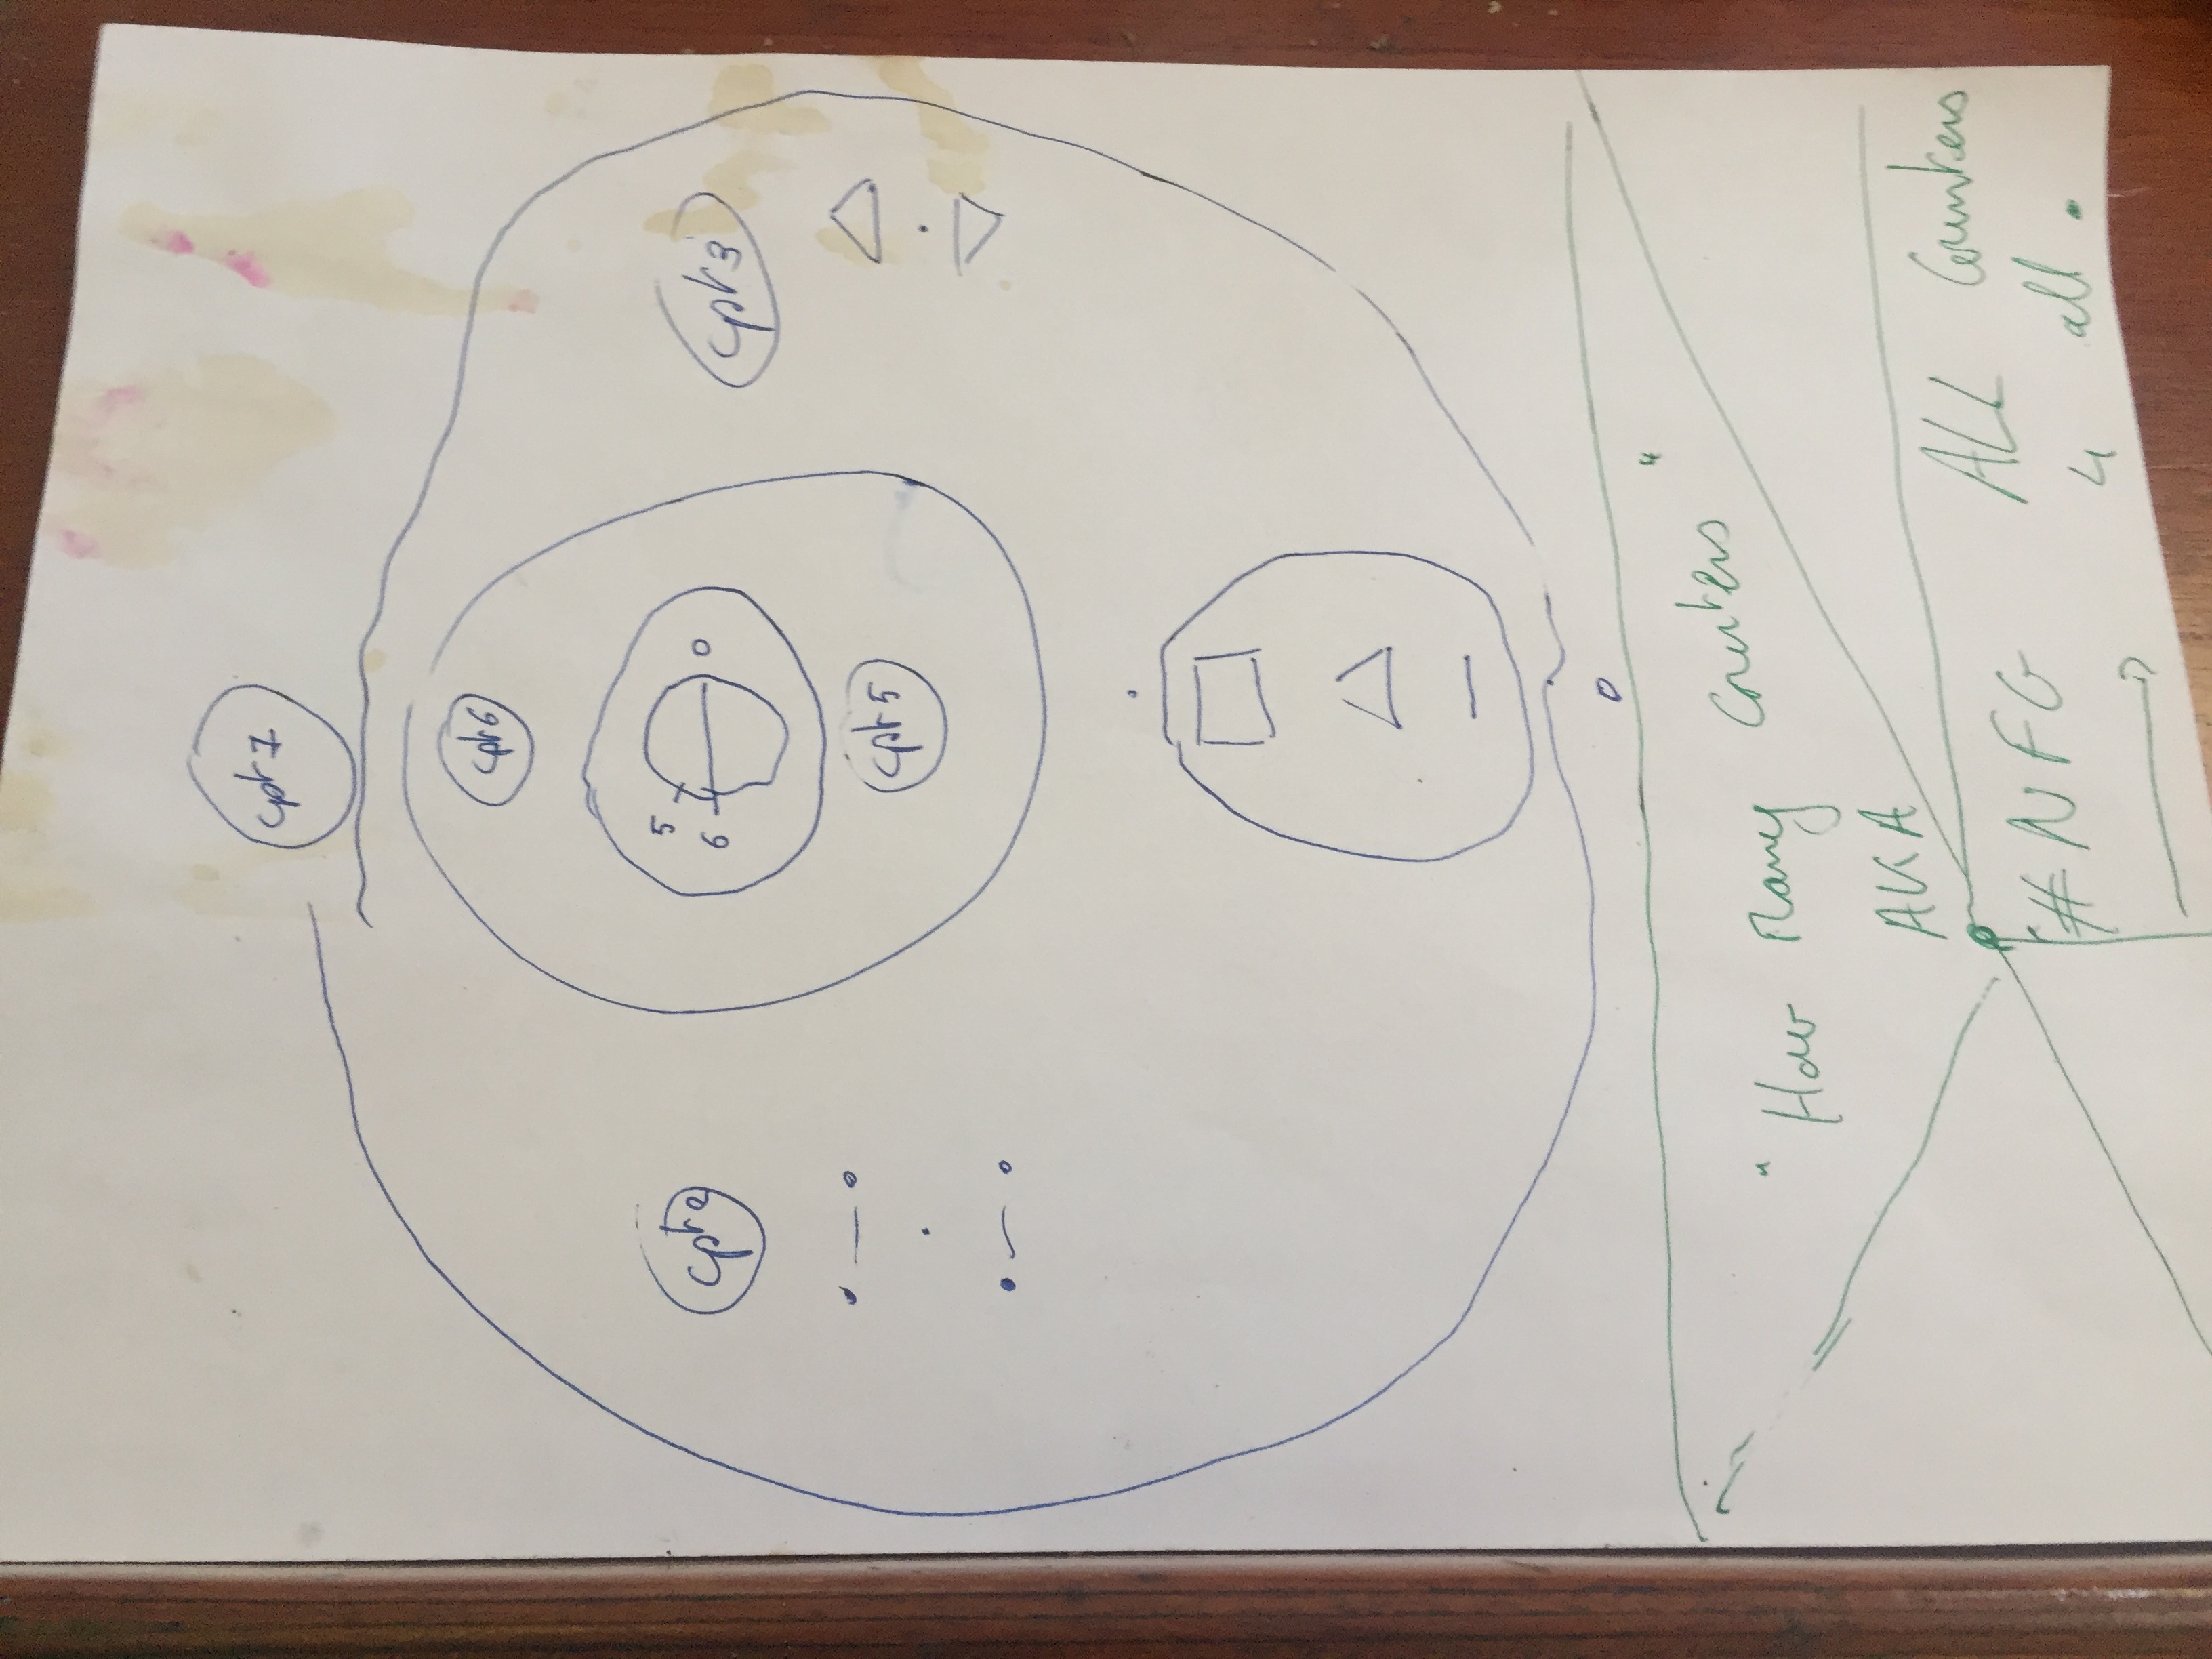 cpt 1
cpt 6
5
6 0
cpt 2 cpt 3
cpt 5
0
"How Many Counters"
AKA
#NFG ALL Counters
4 all.